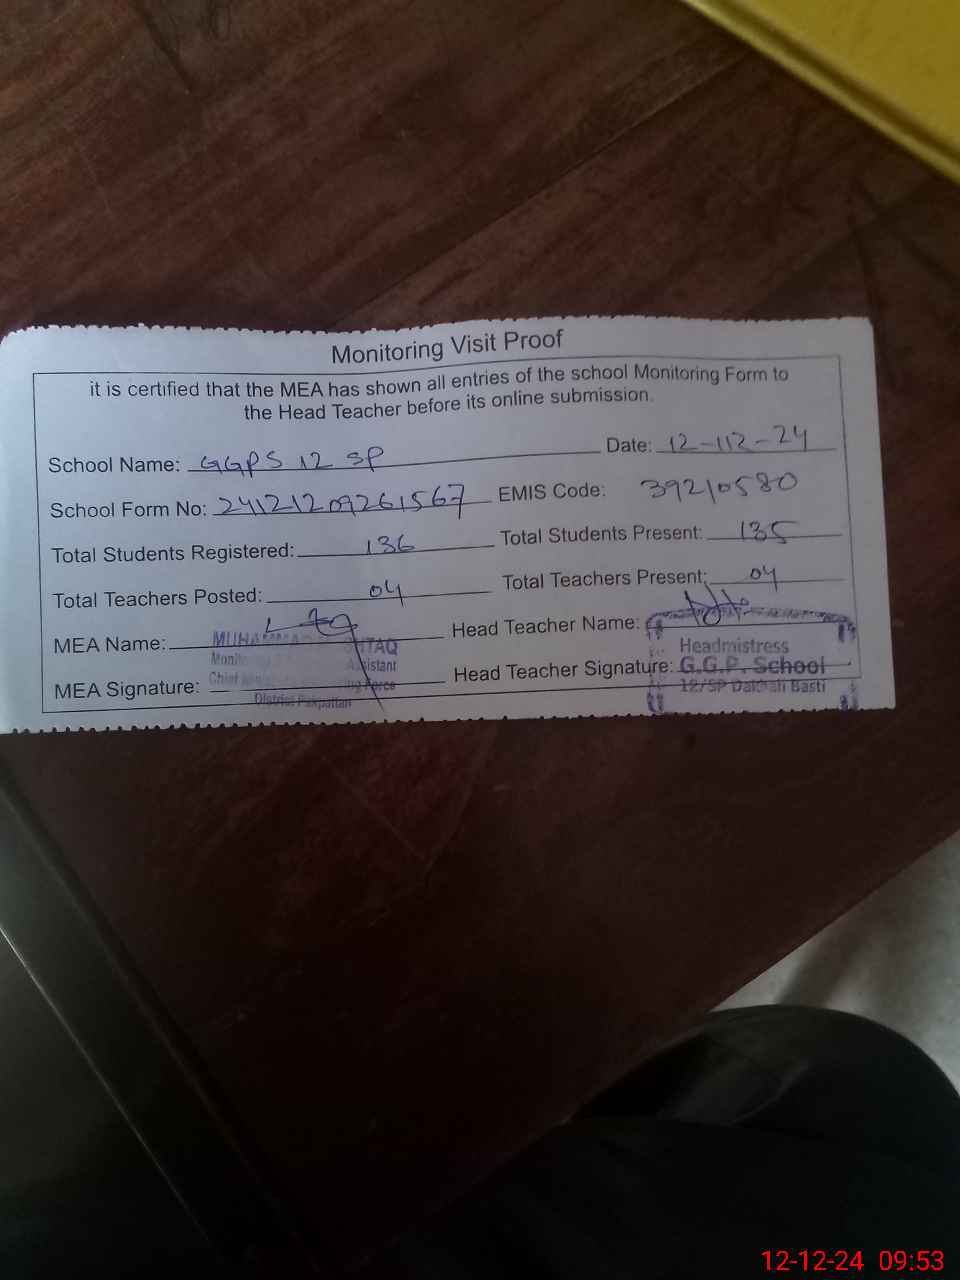 Monitoring Visit Proof
it is certified that the MEA has shown all entries of the school Monitoring Form to
the Head Teacher before its online submission.
School Name: GGPS 12 SP Date: 12-112-24
School Form No: 24121209261567 EMIS Code: 39210580
Total Students Registered: 136 Total Students Present: 135
Total Teachers Posted: 04 Total Teachers Present: 04
MEA Name: Head Teacher Name:
Headmistress
Assistant
MEA Signature: Head Teacher Signature: G.G.P. School
Force
12/SP Basti
District Pakpattan
12-12-24 09:53